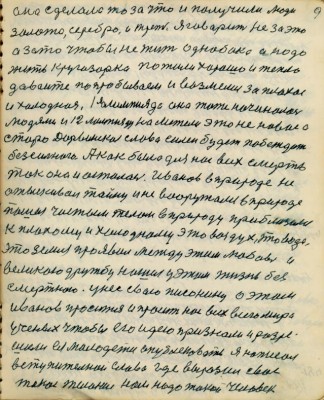 она сделала то за что и получили люди
золото, серебро, и медь. Я говорит не за это
а за то чтобы не жить однобоко а надо
жить кругозорко пожили хорошо и тепло
давайте попробываем и возмемся за плохое
и холодное,
людям и это не новое а
старо Дарвинское слово силен будет побеждать
безсильного. А как было для нас всех смерть
так она и осталась. Иванов в природе не
отыскивал тайну и не вооружали в природе
пошел чистым телом в природу приблизился
к плохому и холодному это воздух, то вода,
это земля проявил между этим любовь и
великого дружбу нашел у этом жизнь без
смертною. унес свою писанину о этом
Иванов просится и просит нас всех всего мира
ученых чтобы его идею признали и разре-
шили ей молодети опубликовать я написал
вступительное слово где выразил свое
такое нам надо такой человек